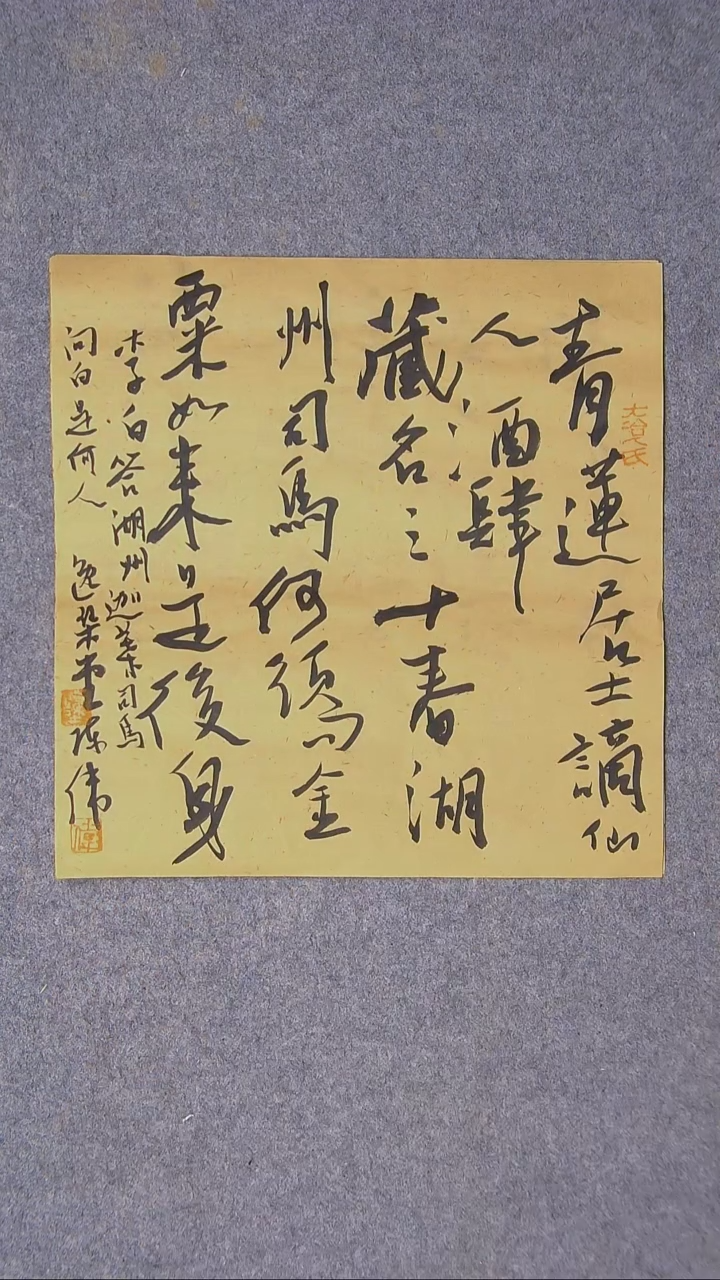 青蓮居士謫仙
人酒肆
藏名三十春湖
州司馬何須问金
粟如来是後身
李白答湖州迦葉司馬
问白是何人 逸堂 伟